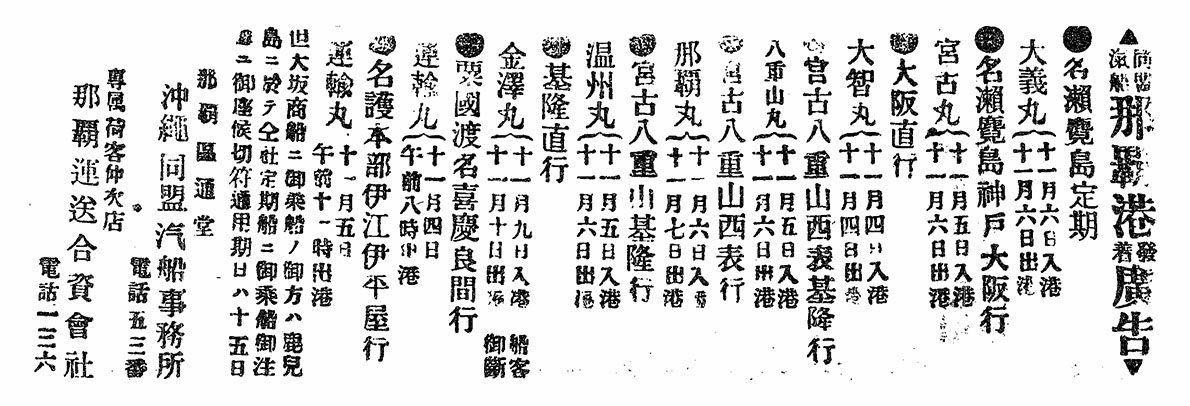 ▲同盟汽船那覇港發着廣告▼
●名瀬鹿島定期
大義丸{十一月六日入港
十一月六日出港
●名瀬鹿島神戸大阪行
宮古丸{十一月五日入港
十一月六日出港
●大阪直行
大智丸{十一月四日入港
十一月四日出港
●宮古八重山西表基隆行
八重山丸{十一月五日入港
十一月六日出港
●宮古八重山西表行
那覇丸{十一月六日入港
十一月七日出港
●宮古八重山基隆行
温州丸{十一月五日入港
十一月六日出港
●基隆直行
金澤丸{十一月九日入港
十一月十日出港
船客
御斷
●粟國渡名喜慶良間行
運輸丸{十一月四日
午前八時出港
●名護本部伊江伊平屋行
運輸丸 十一月五日
午前十一時出港
但大坂商船ニ御乗船ノ御方ハ鹿兒
島ニ於テ仝社定期船ニ御乗船御注
意ニ御座候切符通用期日ハ十五日
那覇區通堂
沖繩同盟汽船事務所
電話五三番
專属荷客仲次店
那覇運送合資會社
電話一三六